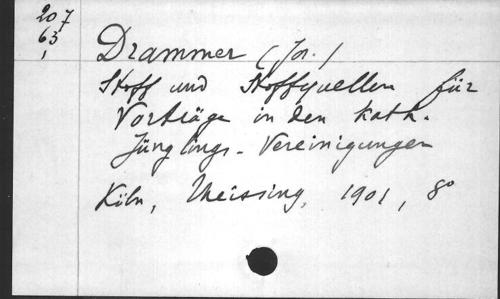 207
63
1
Drammer (Jos.)
Stoff und Stoffquellen für
Vorträge in den kath.
Jünglings-Vereinigungen
Köln, Theissing, 1901, 8°